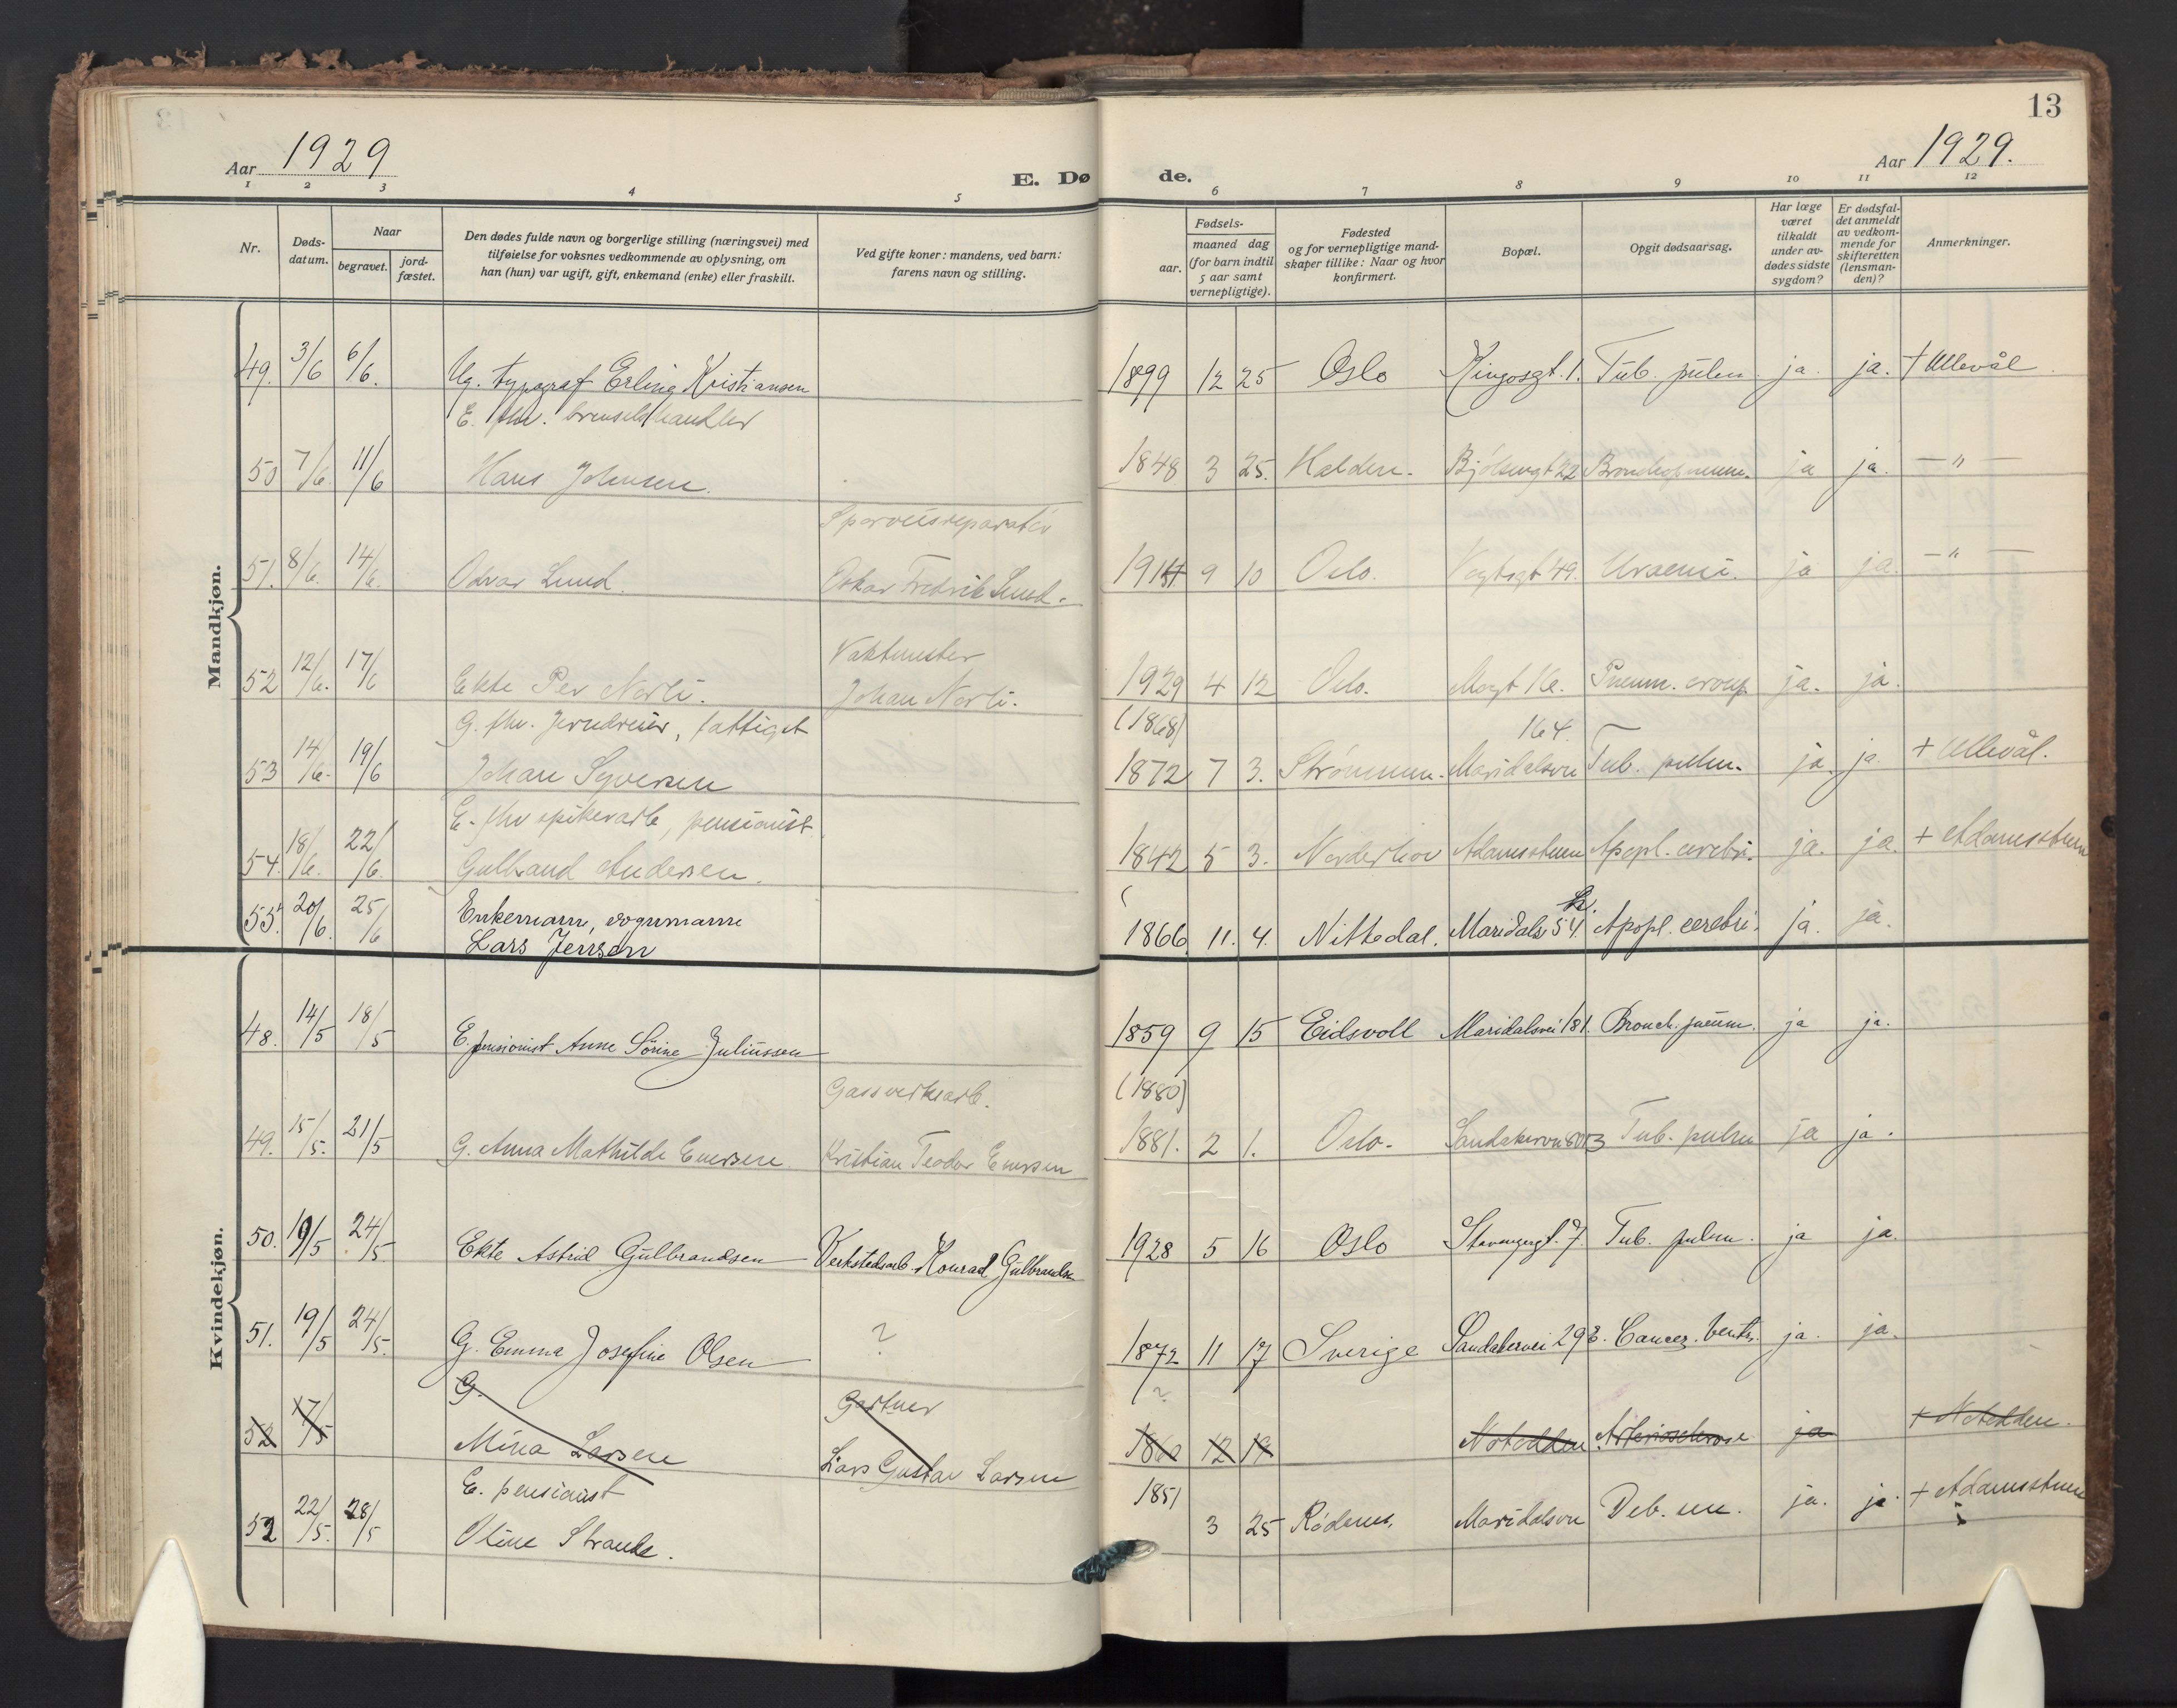 13
Aar 1929
E. Døde.
Aar 1929.
1 2 3 4 5 6 7 8 9 10 11 12
Nr.
Døds-datum.
Naar
begravet.
jord-fæstet.
Den dødes fulde navn og borgerlige stilling (næringsvei) med
tilføielse for voksnes vedkommende av oplysning, om
han (hun) var ugift, gift, enkemand (enke) eller fraskilt.
Ved gifte koner: mandens, ved barn:
farens navn og stilling.
Fødsels-
aar.
maaned dag
(for barn indtil
5 aar samt
vernepligtige).
Fødested
og for vernepligtige mand-
skaper tillike: Naar og hvor
konfirmert.
Bopæl.
Opgit dødsaarsag.
Har læge
været
tilkaldt
under av-
dødes sidste
sygdom?
Er dødsfal-
det anmeldt
av vedkom-
mende for
skifteretten
(lensman-
den)?
Anmerkninger.
Mandkjøn.
49. 3/6 6/6. Ug. typograf Erling Kristiansen 1899 12 25 Oslo Kingosgt. 1. Tub. pulm. ja. ja. + Ullevål.
E. fhv. brenselshandler
50 7/6. 11/6 Hans Johnsen. 1848 3 25. Halden. Bjølsengt 22 Bronchopneum. ja ja. — " —
Sporveisreparatør
51. 8/6. 14/6. Odvar Lund. Oskar Fredrik Lund. 1914 9 10 Oslo. Vogtsgt 49. Uraemi. ja ja. — " —
Vaktmester
52 12/6. 17/6 Ekte Per Norli. Johan Norli. 1929 4 12 Oslo. Mogt 16. Pneum. croup. ja. ja.
G. fhv. Jerndreier, fattiget (1868) 164.
53 14/6. 19/6 Johan Syversen 1872 7 3. Strømmen. Maridalsvn Tub. pulm. ja. ja. + Ullevål.
E. fhv spikerarb, pensionist
54. 18/6. 22/6. Gulbrand Andersen. 1842 5 3. Norderhov Adamstuen Apopl. cerebri. ja. ja. + Adamstuen
55. 20/6. 25/6 Enkemann, vognmann
Lars Jensen 1866 11. 4. Nittedal. Maridalsv 54. Apopl. cerebri. ja. ja.
Kvindekjøn.
48. 14/5 18/5 E. pensionist Anne Sørine Juliussen 1859 9 15 Eidsvoll Maridalsvei 181. Bronch. pneum. ja ja.
Gassverksarb. (1880)
49. 15/5. 21/5 G. Anna Mathilde Enersen. Kristian Teodor Enersen 1881. 2 1. Oslo. Tub. pulm ja ja.
50. 19/5 24/5. Ekte Astrid Gulbrandsen Verkstedsarb. Konrad Gulbrandsen 1928 5 16 Oslo Stavangergt. 7. Tub. pulm. ja ja.
51. 19/5 24/5. G. Emma Josefine Olsen ? 1872 11 17 Sverige Sandakervei 29 Cancer. ventr. ja. ja.
G. Gartner ?
52 17/5 Mina Larsen Lars Gustav Larsen 1860 12 19 Notodden Arteriosclerose ja + Notodden.
E. pensionist 1851
52 22/5. 28/5 Oline Strande. 3 25 Rødenes, Maridalsvn Deb. sen. ja. ja. + Adamstuen